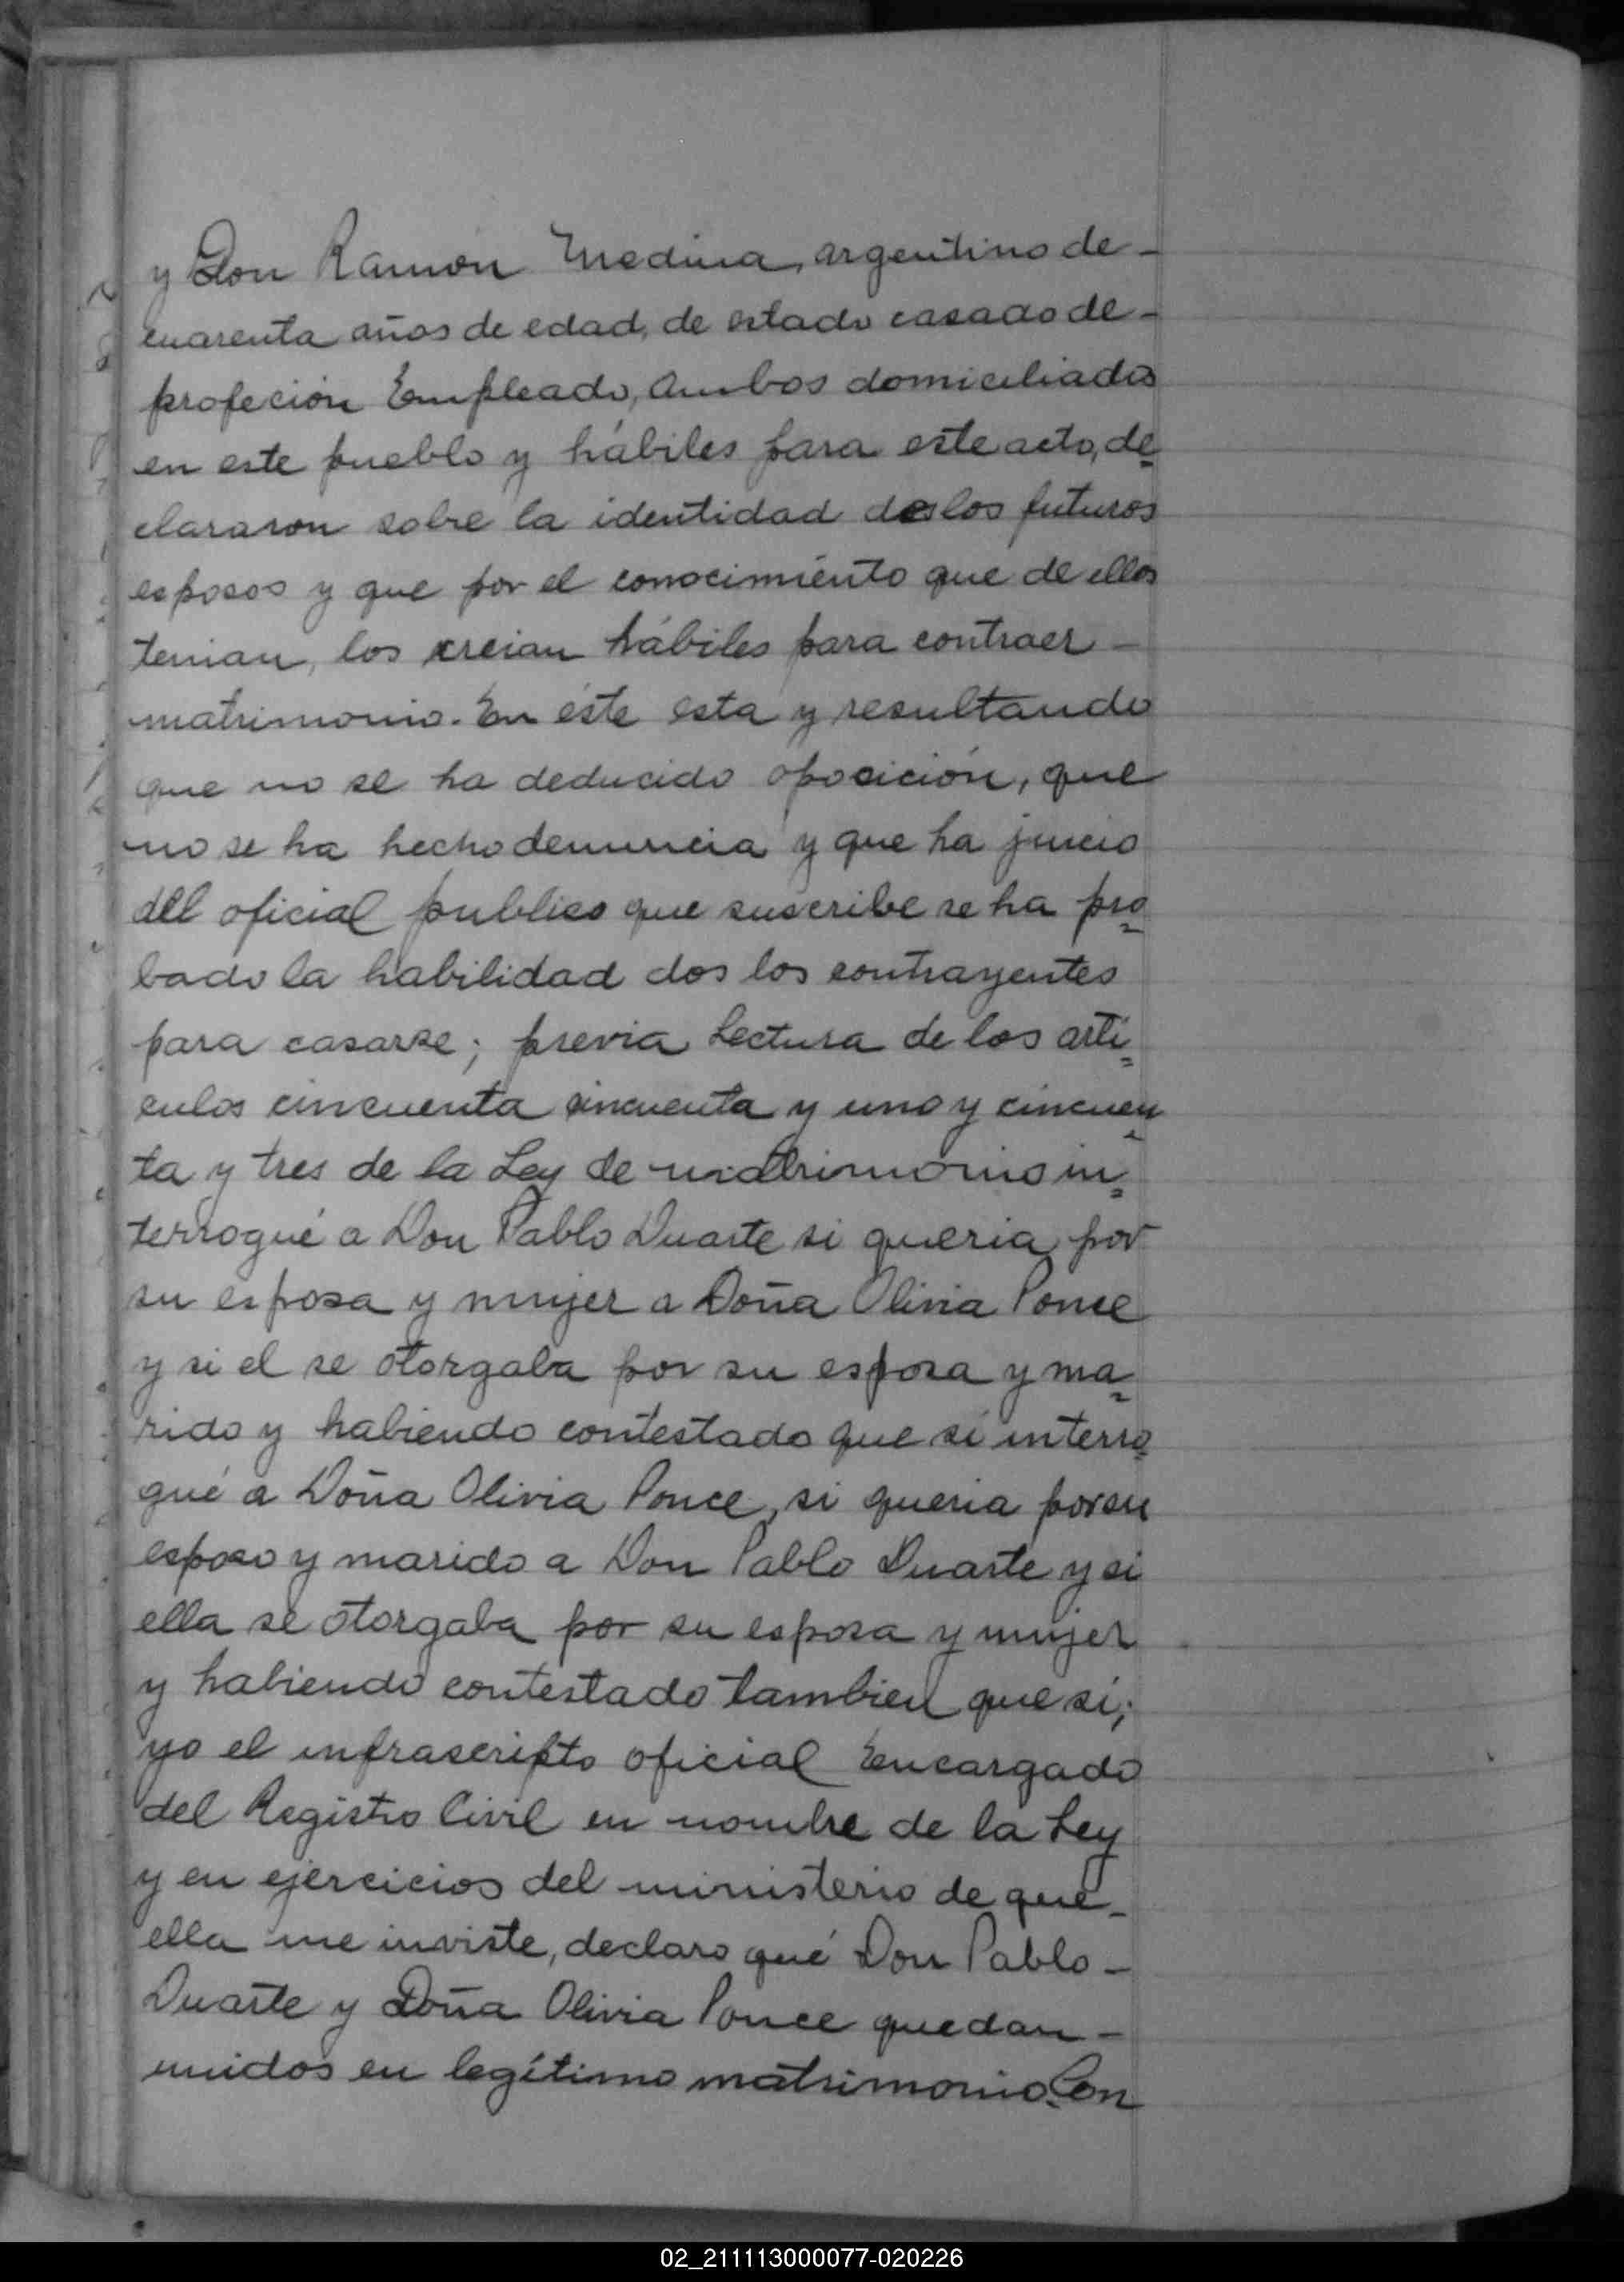 y Don Ramón Medina, argentino de -
cuarenta años de edad, de estado casado de -
profeción Empleado, Ambos domiciliados
en este pueblo y hábiles para este acto, de=
clararon sobre la identidad de los futuros
esposos y que por el conocimiénto que de ellos
tenian, los creian hábiles para contraer -
matrimonio. En éste esta y resultando
que no se ha deducido oposición, que
no se ha hecho denuncia y que ha juicio
del oficial publico que suscribe se ha pro=
bado la habilidad dos los contrayentes
para casarse; previa Lectura de los arti=
culos cincuenta cincuenta y uno y cincuen=
ta y tres de la Ley de matrimonio in=
terrogué a Don Pablo Duarte si queria por
su esposa y mujer a Doña Olivia Ponce
y si el se otorgaba por su esposa y ma=
rido y habiendo contestado que si interro=
gué a Doña Olivia Ponce, si queria por su
esposo y marido a Don Pablo Duarte y si
ella se otorgaba por su esposa y mujer
y habiendo contestado tambien que si;
yo el infrascripto oficial Encargado
del Registro Civil en nombre de la Ley
y en ejercicios del ministerio de que -
ella me inviste, declaro qué Don Pablo -
Duarte y Doña Olivia Ponce quedan -
unidos en legítimo matrimonio. Con
02_211113000077-020226